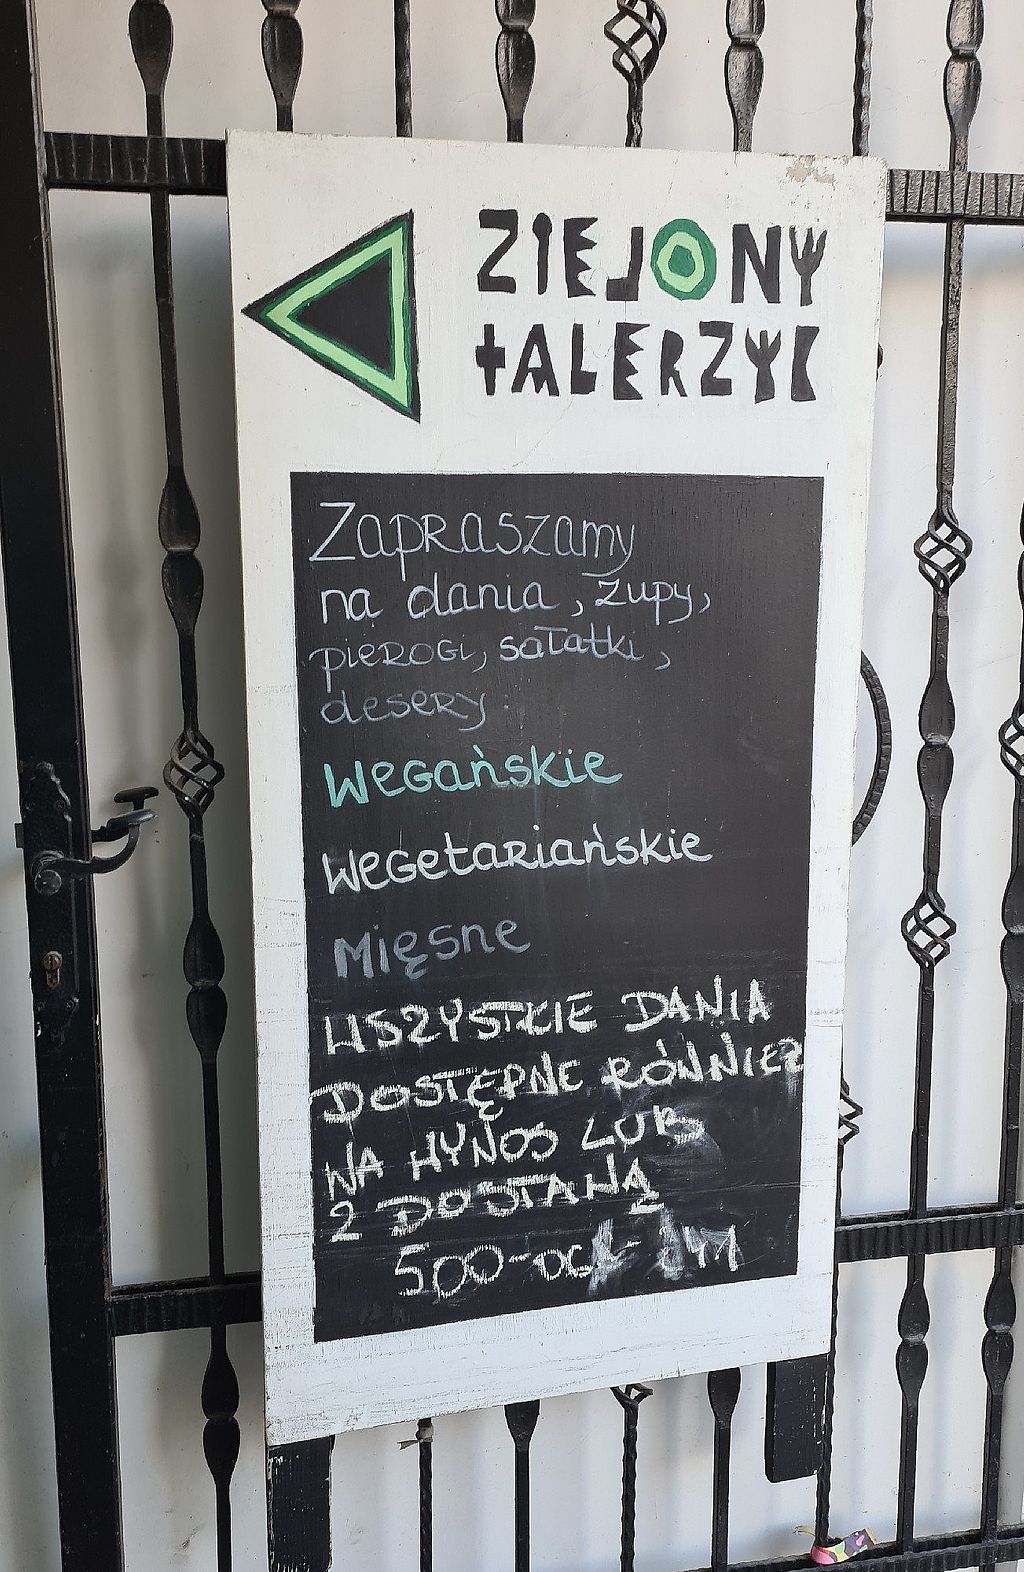 ZIEJONY
tALERZYK
Zapraszamy
na dania, zupy,
pierogi, sałatki,
desery
Wegańskie
Wegetariańskie
Mięsne
WSZYSTKIE DANIA
DOSTĘPNE RÓWNIEŻ
NA WYNOS LUB
Z DOSTAWĄ
500-